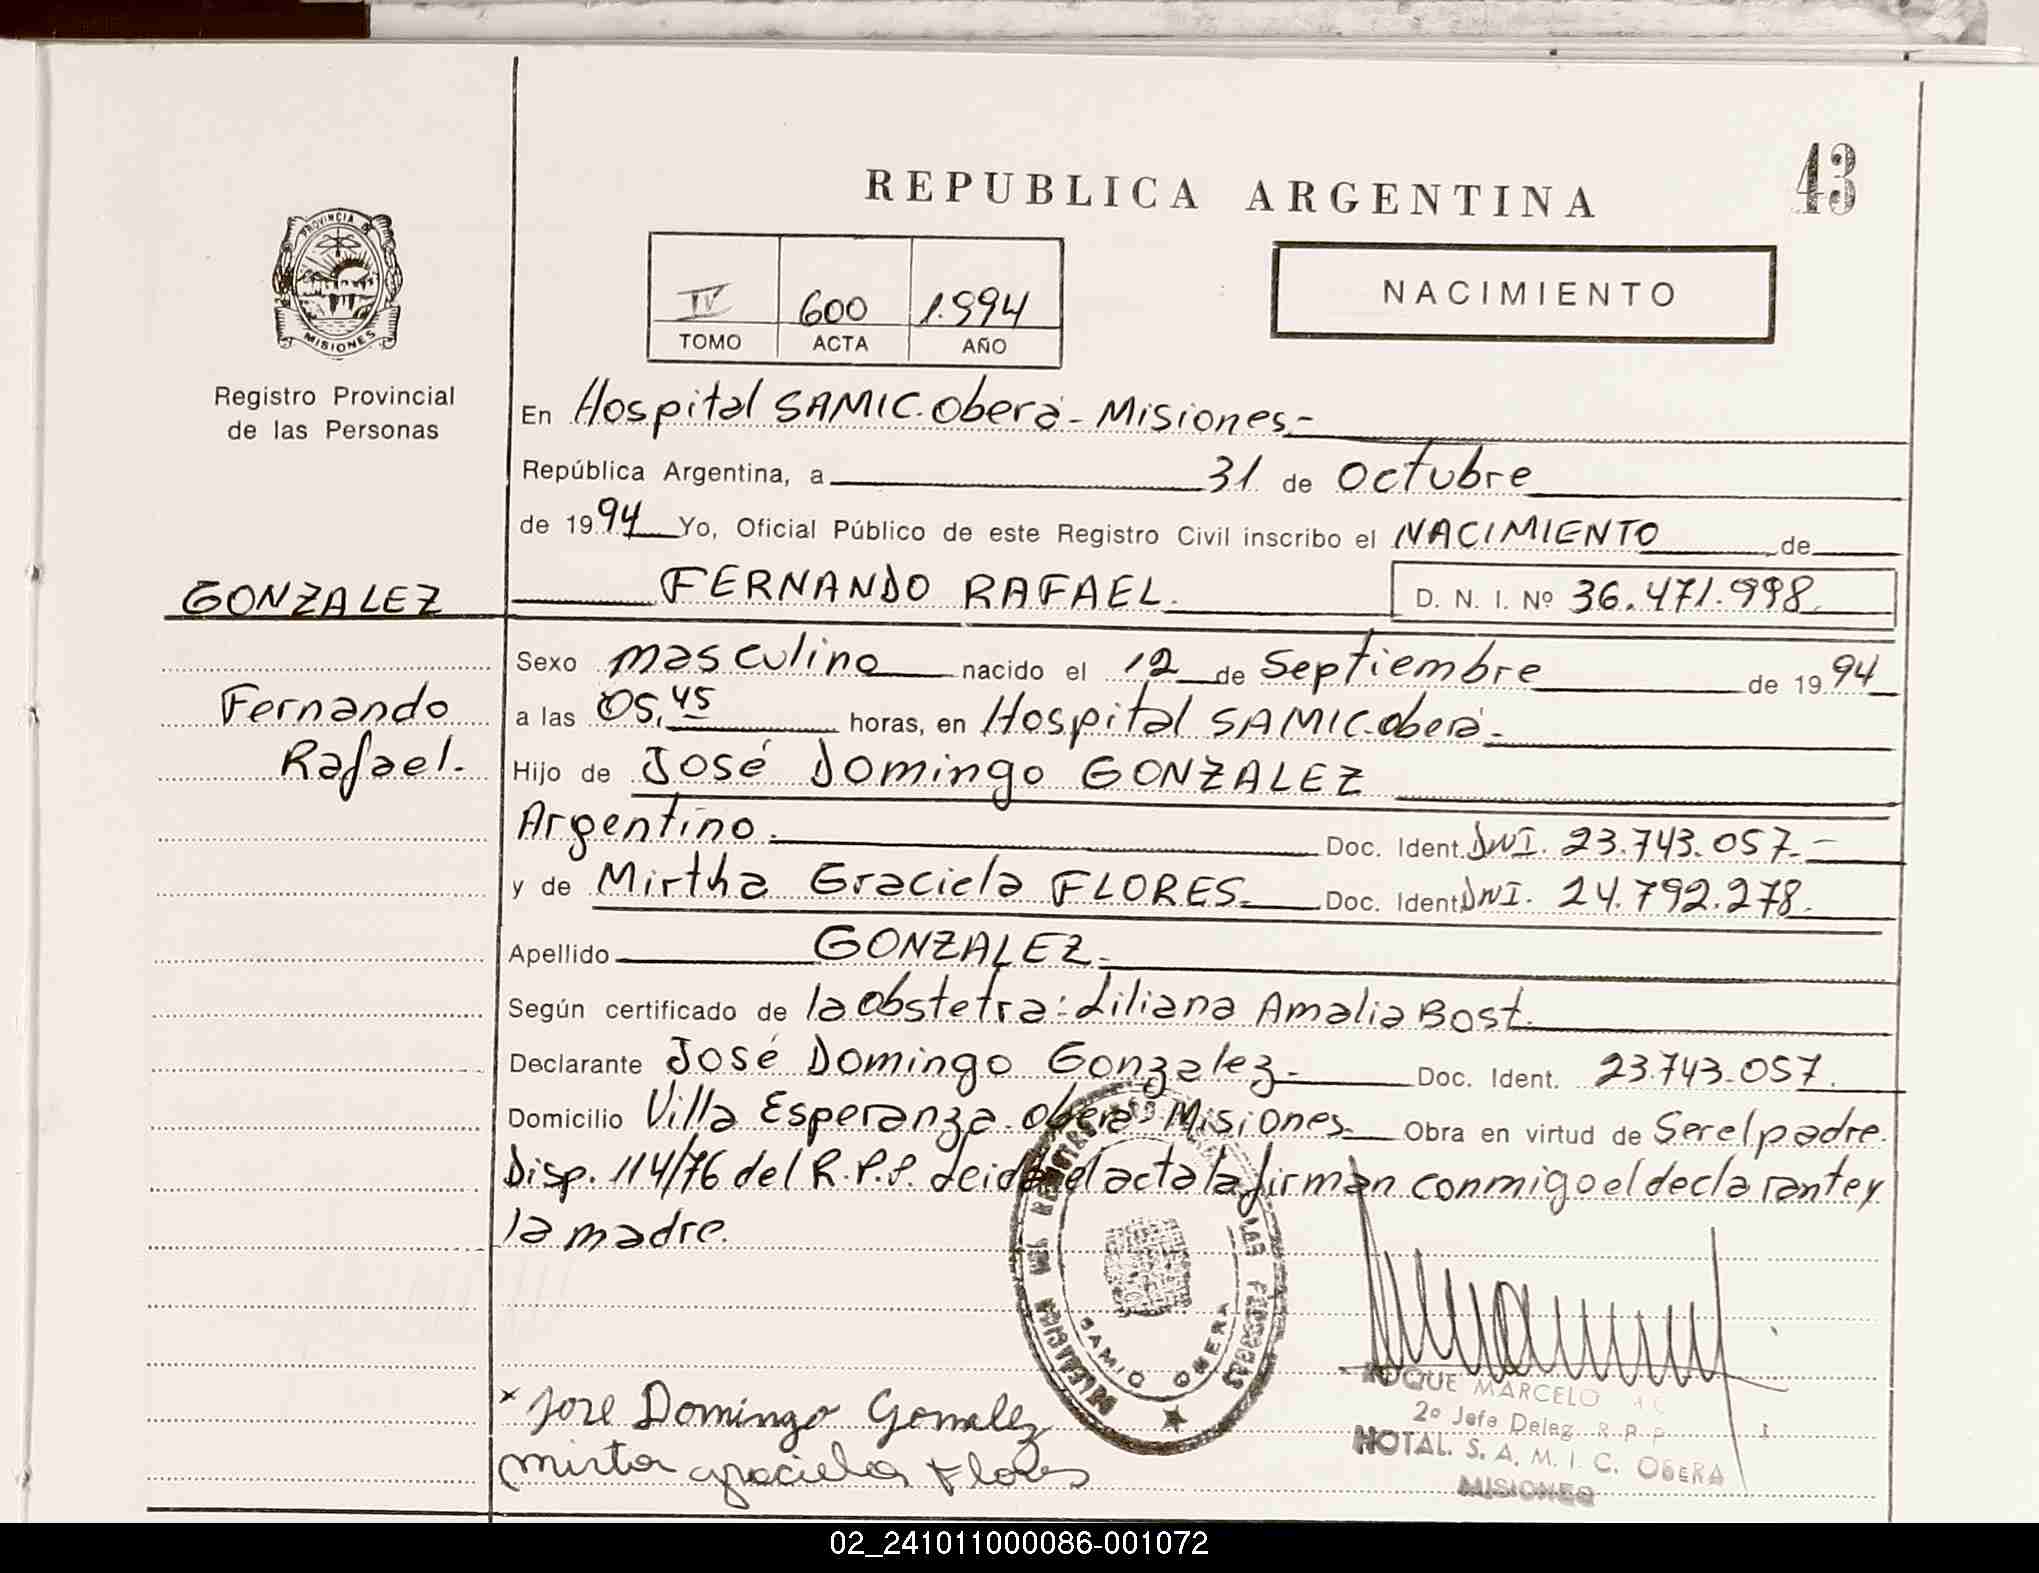 43
REPUBLICA ARGENTINA
PROVINCIA DE
MISIONES
NACIMIENTO
IV 600 1.994
TOMO ACTA AÑO
Registro Provincial
de las Personas
En Hospital SAMIC. Oberá - Misiones.-
República Argentina, a 31 de Octubre
de 1994 Yo, Oficial Público de este Registro Civil inscribo el NACIMIENTO de
GONZALEZ
FERNANDO RAFAEL. D. N. I. Nº 36.471.998
Sexo masculino nacido el 12 de Septiembre de 1994
Fernando
Rafael.-
a las 05,45 horas, en Hospital SAMIC. Oberá.-
Hijo de José Domingo GONZALEZ
Argentino. Doc. Ident. DNI. 23.743.057.-
y de Mirtha Graciela FLORES. Doc. Ident. DNI. 24.792.278.
Apellido GONZALEZ.-
Según certificado de la obstetra: Liliana Amalia Bost.
Declarante José Domingo Gonzalez.- Doc. Ident. 23.743.057.
Domicilio Villa Esperanza. Oberá - Misiones. Obra en virtud de Ser el padre.
Disp. 114/76 del R.P.P. Leida el acta la firman conmigo el declarante y
la madre.
SAMIC OBERA
x Jose Domingo Gomalez
mirta graciela Flores
ROQUE MARCELO
2º Jefe Deleg. R. P. P.
HOTAL. S. A. M. I. C. OBERA
MISIONES
02_241011000086-001072